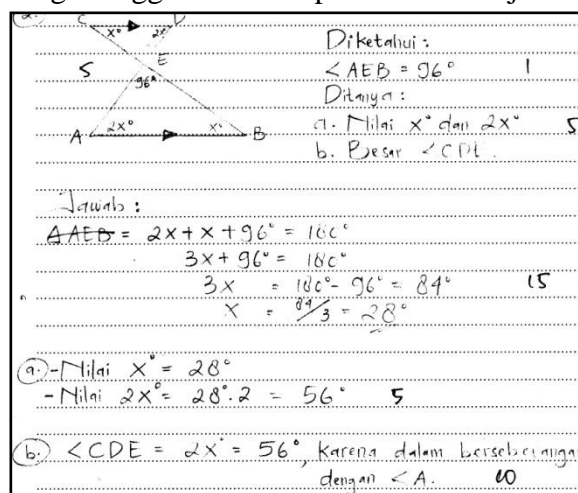 2.
C D
x° 2x
E
5
96°
A 2x° x° B
Diketahui :
∠AEB = 96° 1
Ditanya :
a. Nilai x° dan 2x° 5
b. Besar ∠CDE.
Jawab :
AAEB = 2x + x + 96° = 180°
3x + 96° = 180°
3x = 180° - 96° = 84° 15
x = 84/3 = 28°
a. - Nilai x° = 28°
- Nilai 2x° = 28°.2 = 56° 5
b. ∠CDE = 2x° = 56°, karena dalam berseberangan
dengan ∠A. 10